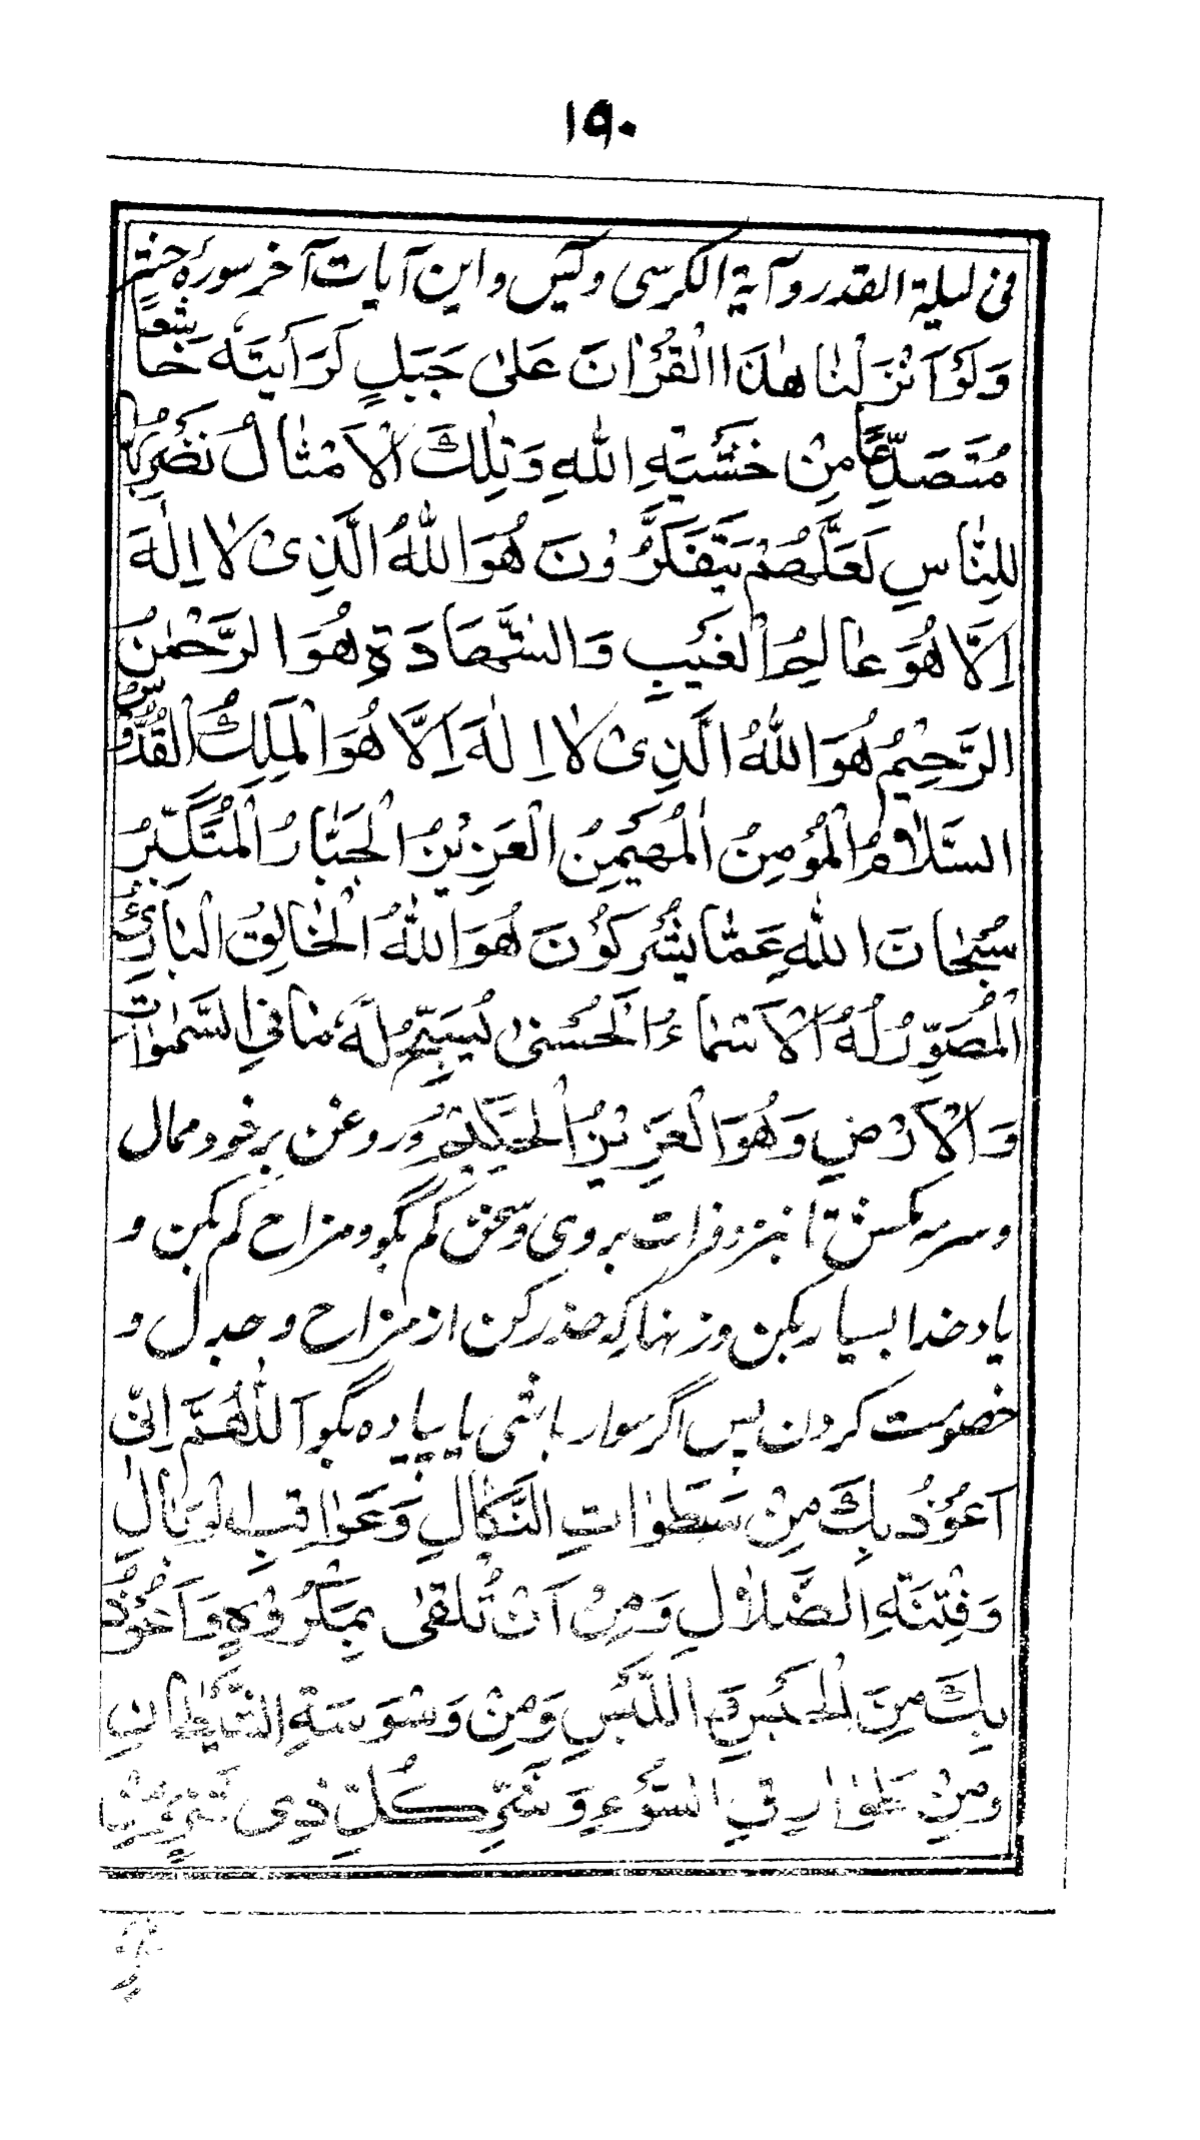 ۱۹۰
فی لیلة القدر و آیة الکرسی و یس و این آیات آخر سورهٔ حشر
وَلَوْ اَنْزَلْنَا هٰذَا الْقُرْانَ عَلىٰ جَبَلٍ لَرَاَیْتَهُ خَاشِعًا
مُتَصَدِّعًا مِنْ خَشْیَةِ اللهِ وَتِلْكَ الْاَمْثٰالُ نَضْرِبُهَا
لِلنّٰاسِ لَعَلَّهُمْ یَتَفَکَّرُوْنَ هُوَ اللهُ الَّذِیْ لٰا اِلٰهَ
اِلَّا هُوَ عٰالِمُ الْغَیْبِ وَالشَّهَادَةِ هُوَ الرَّحْمٰنُ
الرَّحِیْمُ هُوَ اللهُ الَّذِیْ لٰا اِلٰهَ اِلَّا هُوَ الْمَلِكُ الْقُدُّوْسُ
السَّلٰامُ الْمُؤْمِنُ الْمُهَیْمِنُ الْعَزِیْزُ الْجَبّٰارُ الْمُتَکَبِّرُ
سُبْحٰانَ اللهِ عَمّٰا یُشْرِکُوْنَ هُوَ اللهُ الْخٰالِقُ الْبٰارِئُ
الْمُصَوِّرُ لَهُ الْاَسْمٰاءُ الْحُسْنىٰ یُسَبِّحُ لَهُ مٰا فِی السَّمٰوٰاتِ
وَالْاَرْضِ وَهُوَ الْعَزِیْزُ الْحَکِیْمُ و روغن بر خود ممال
و سرمه مکش تا بنزد فرات بروی و سخن کم بگو و مزاح کم بکن و
یاد خدا بسیار بکن و زنهار که حذر کن از مزاح و جدل و
خصومت کردن پس اگر سوار باشی یا پیاده بگو اَللّٰهُمَّ اِنّی
اَعُوْذُ بِكَ مِنْ سَطَوٰاتِ النَّکٰالِ وَعَوٰاقِبِ الْوَبٰالِ
وَفِتْنَةِ الضَّلٰالِ وَمِنْ اَنْ تُلْقىٰ بِمَکْرُوْهٍ وَاَعُوْذُ
بِكَ مِنَ الْحَبْسِ وَ اللَّبْسِ وَمِنْ وَسْوَسَةِ الشَّیْطٰانِ
وَمِنْ طَوٰارِقِ السُّوْءِ وَشَرِّ کُلِّ ذِی شَرٍّ وَمِنْ